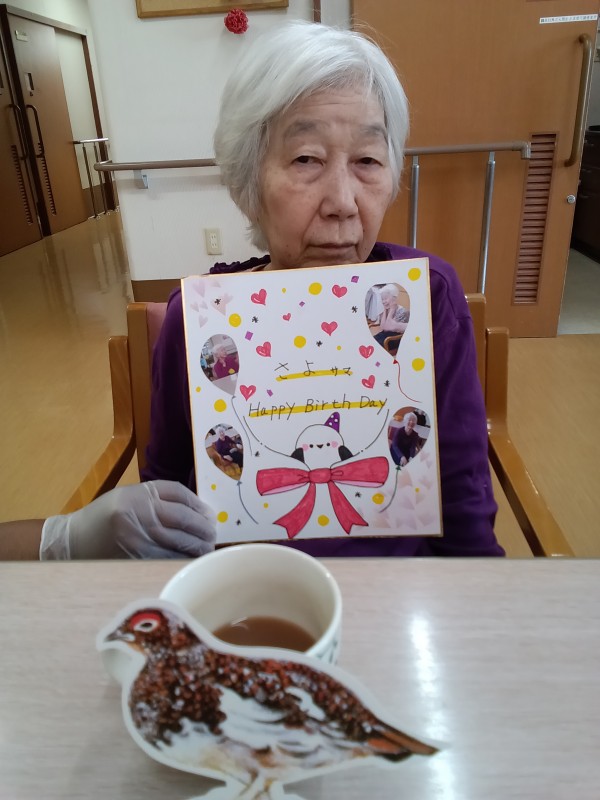 さよ サマ
Happy Birth Day